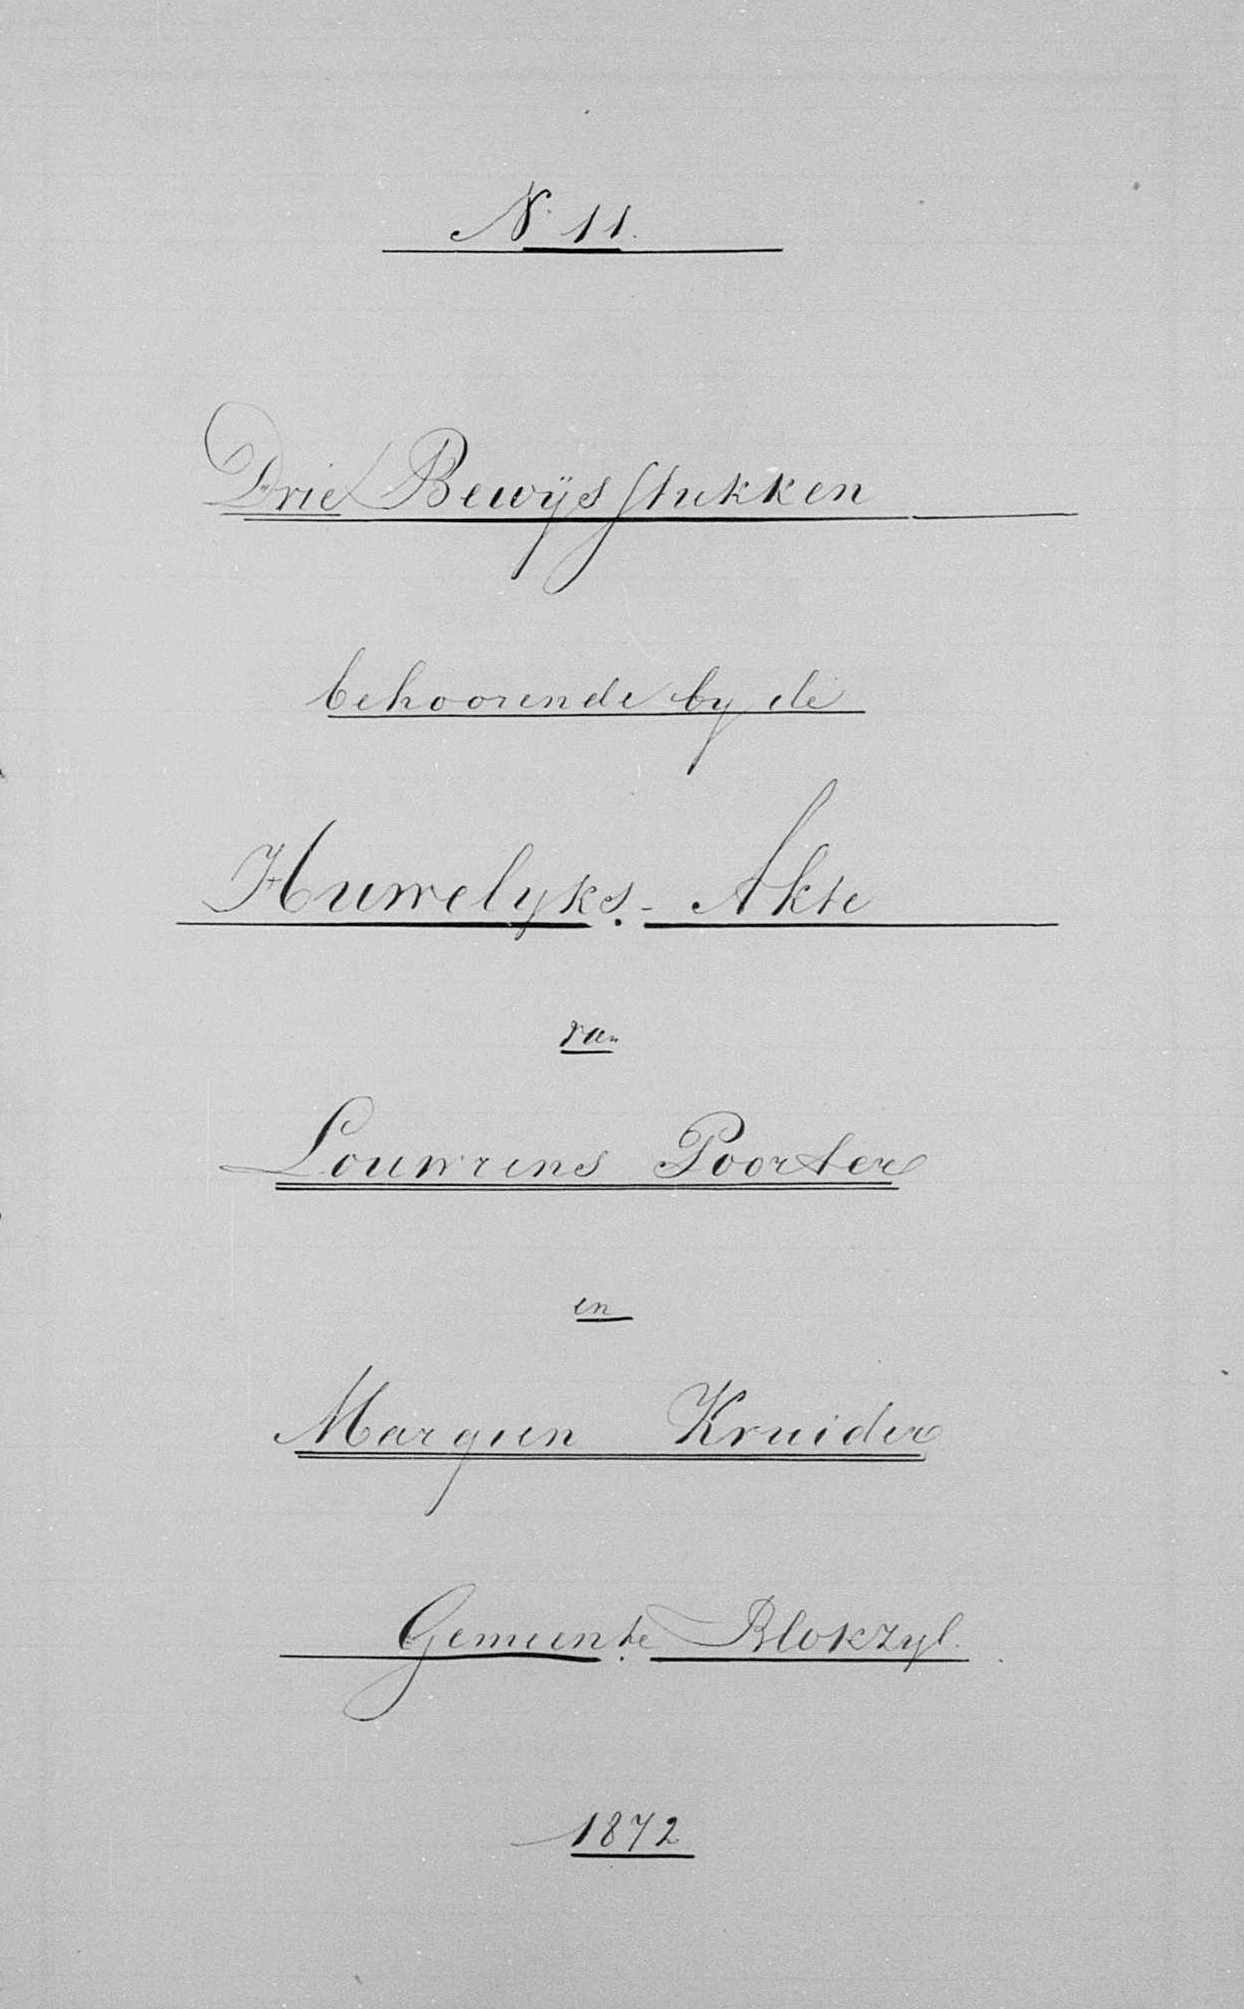 N. 11.
Drie Bewijsstukken
behoorende by de
Huwelyks-Akte
van
Louwrens Poorter
en
Margien Kruider
Gemeente Blokzyl.
1872